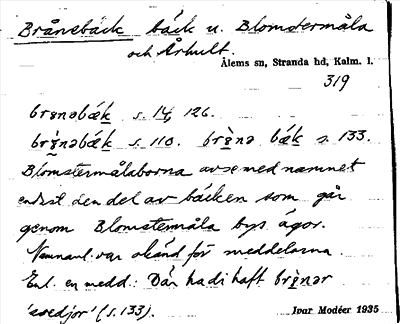 Brånebäck bäck u. Blomstermåla
och Århult.
Ålems sn, Stranda hd, Kalm. l.
319
brɛnəbäck s. 14, 126.
brɛ̀nəbäk s. 110. brɛ̀nə bäk s. 133.
Blomstermålaborna avse med namnet
endast den del av bäcken som går
genom Blomstermåla bys ägor.
Namnant. var okänd för meddelarna.
Enl. en medd.: Där ha di haft brɛ̀nər
'svedjor' (s. 133).
Ivar Modéer 1935